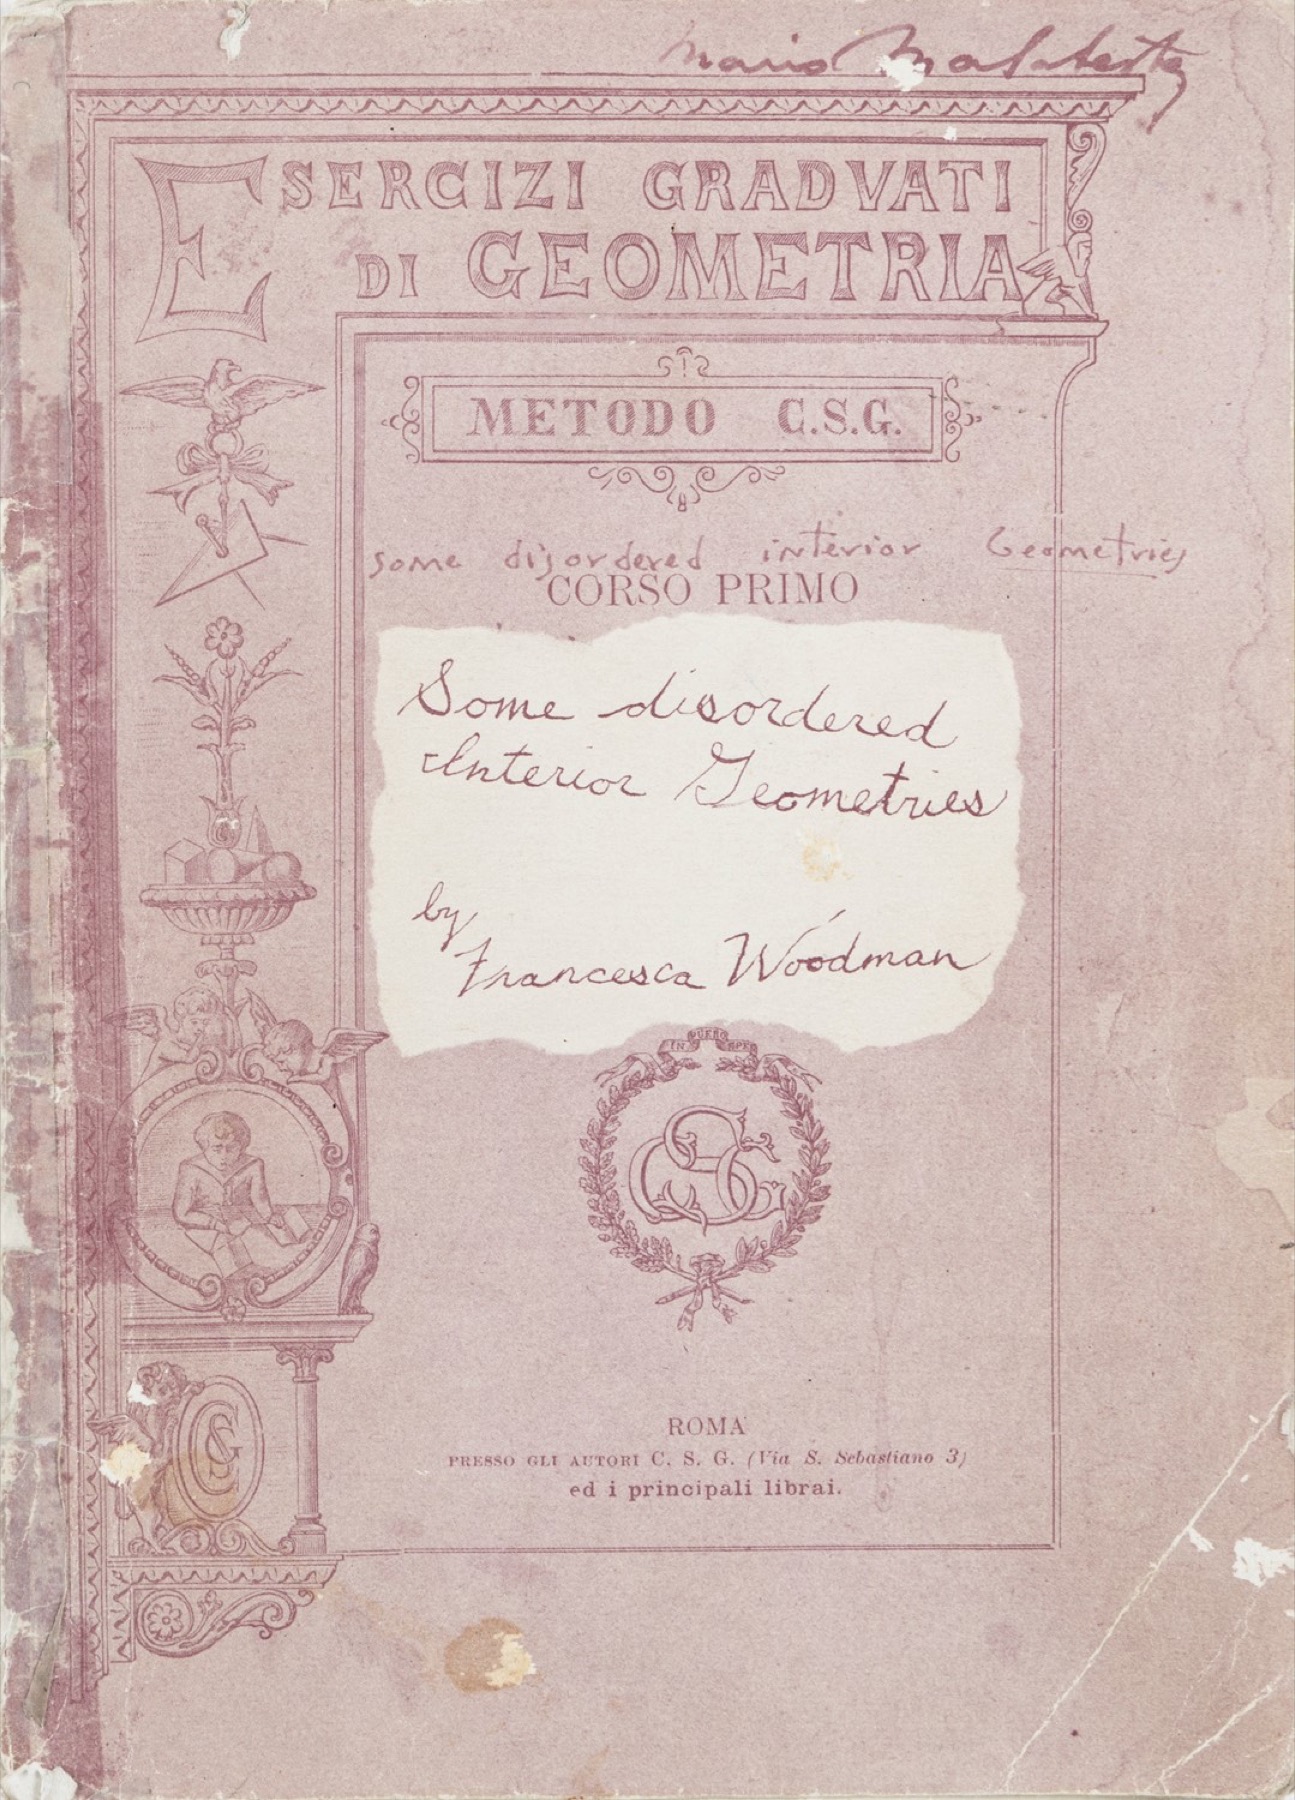 Mario Malatesta
ESERCIZI GRADVATI
DI GEOMETRIA
METODO C.S.G.
some disordered interior Geometries
CORSO PRIMO
Some disordered
Interior Geometries
by
Francesca Woodman
IN PUERO SPES
CSG
CSG
ROMA
PRESSO GLI AUTORI C. S. G. (Via S. Sebastiano 3)
ed i principali librai.